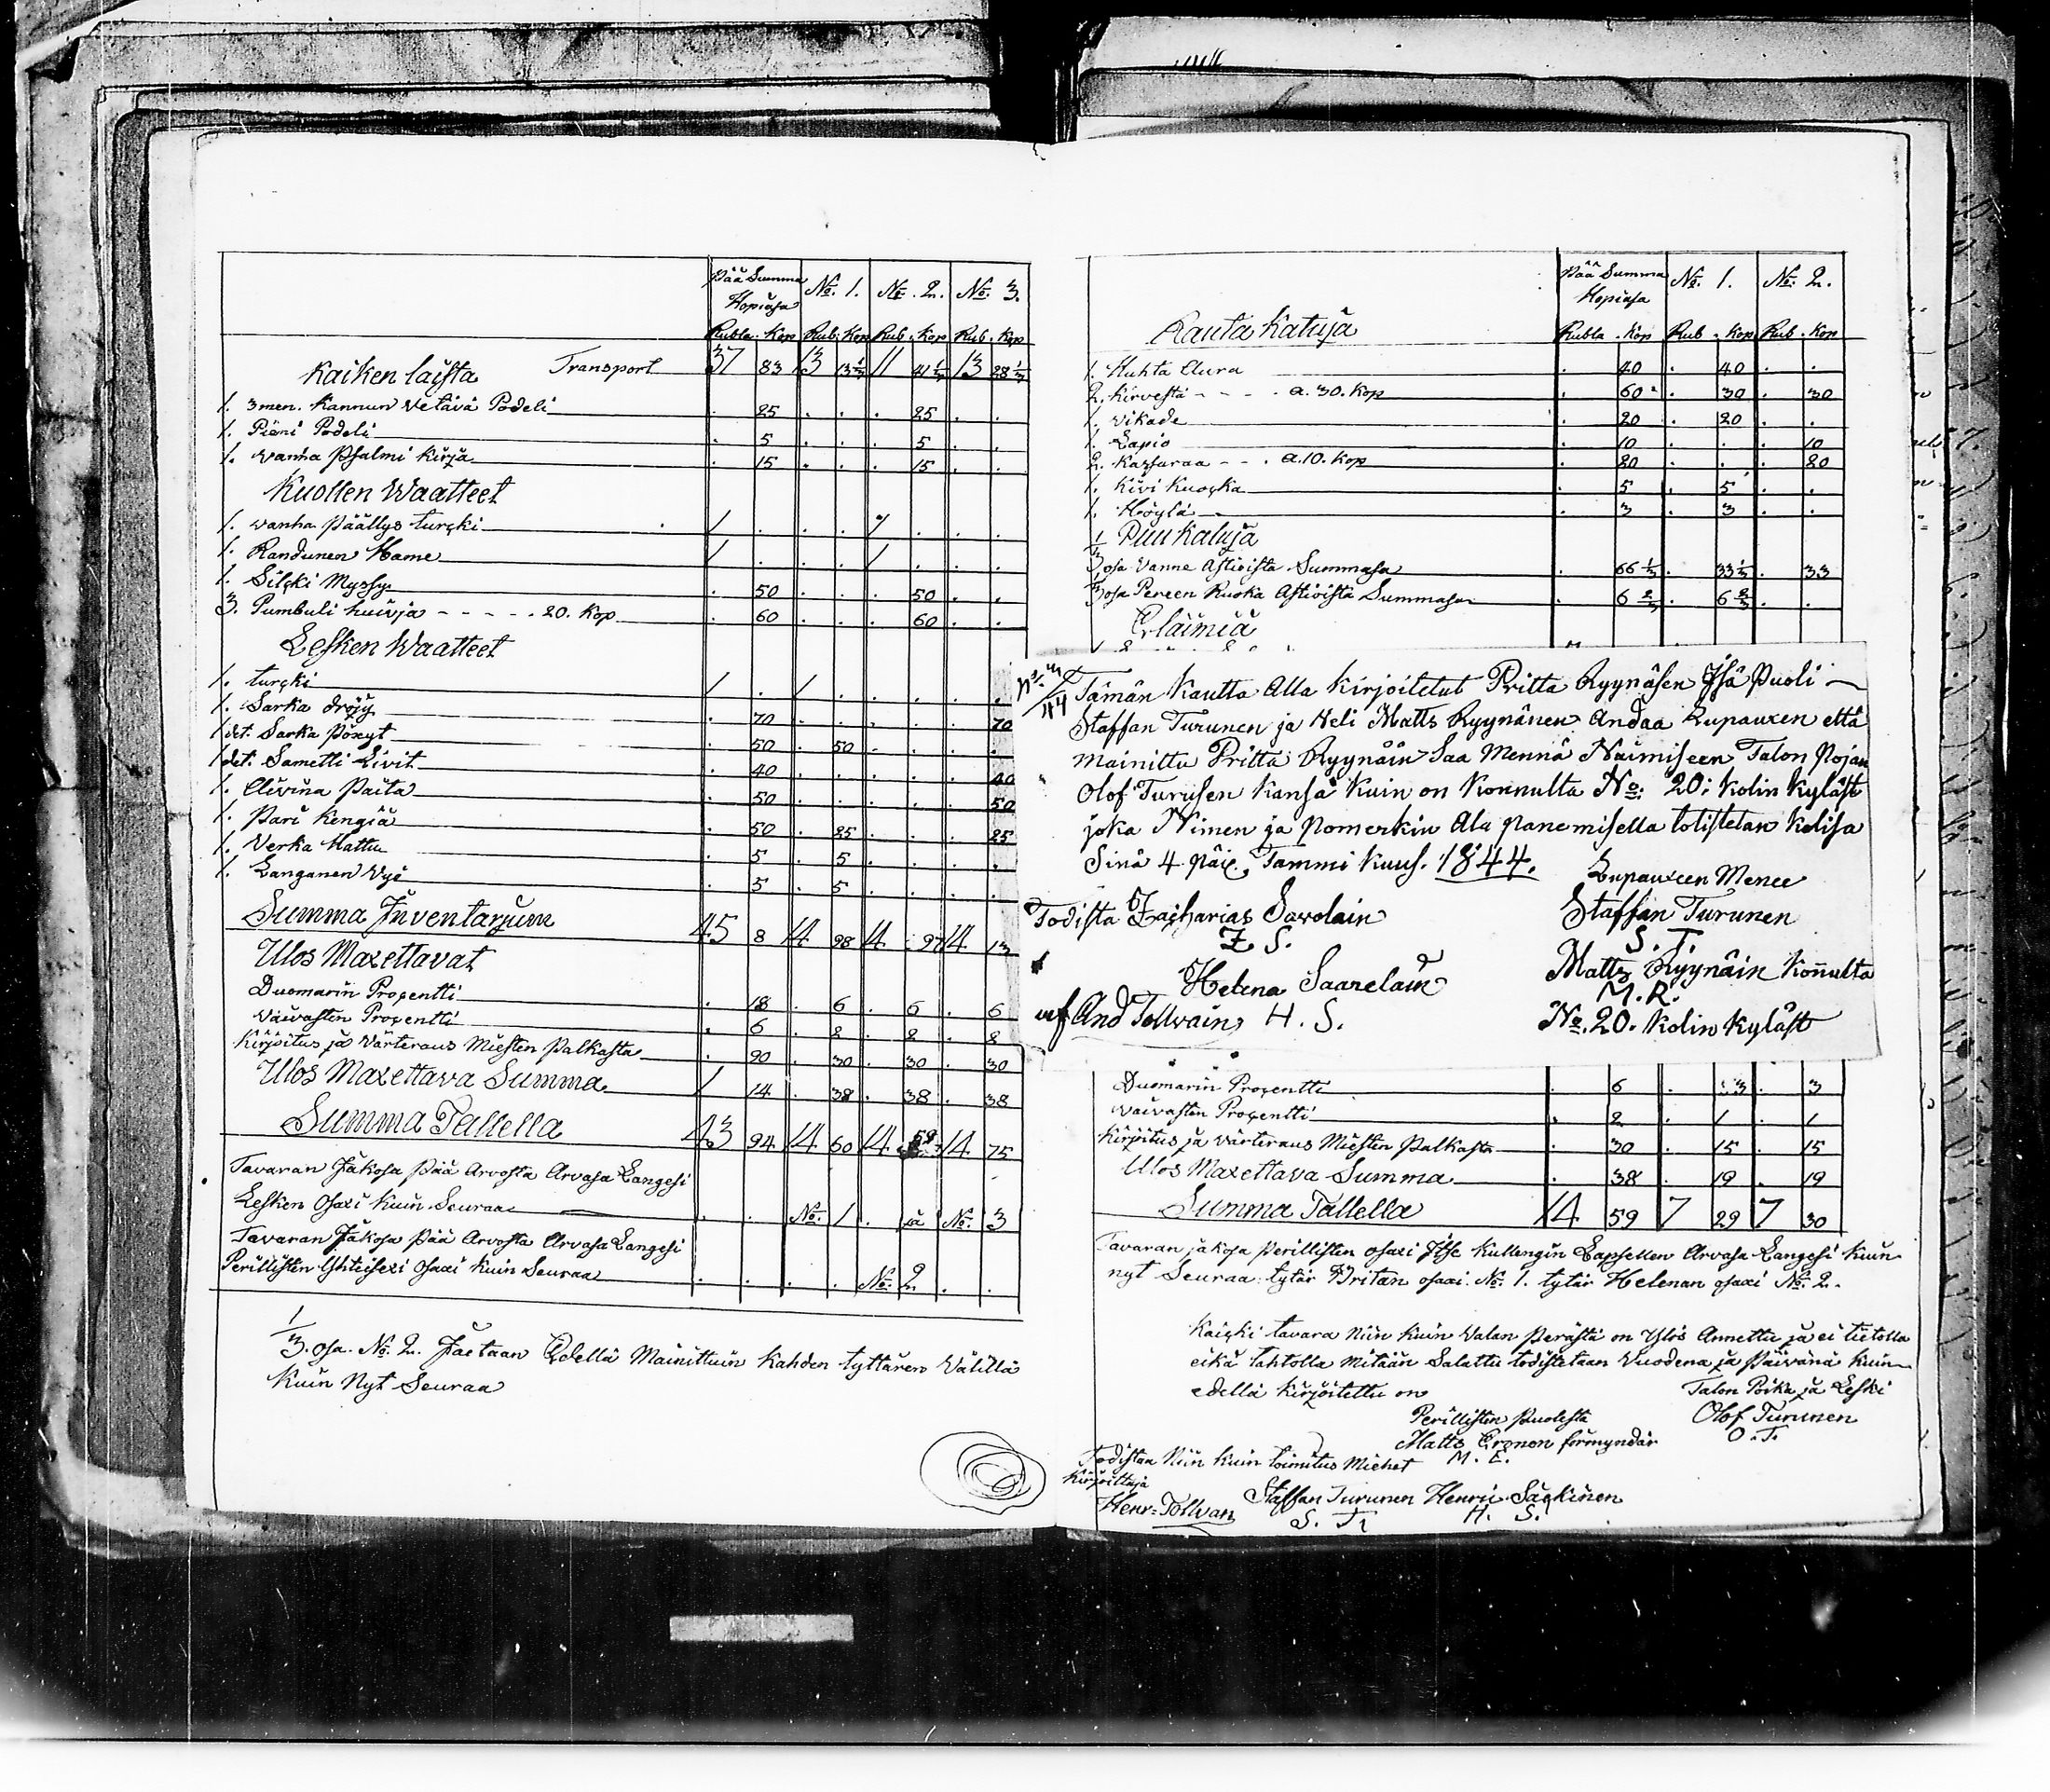 Pää Summa Hopiasa No. 1. No. 2. No. 3.
Rubla. Kop Rub. Kop Rub. Kop Rub. Kop
Kaiken laista Transport 37 83 13 13 1/3 11 41 1/3 13 28 1/3
1. 3men. Kannun Vetävä Podeli . 25 . . . 25 . .
1. Pieni Podeli . 5 . . . 5 . .
1. Wanha Psalmi Kirja . 15 . . . 15 . .
Kuollen Waatteet
1. Wanha Päällys turcki 1 . . . 1 . . .
1. Randunen Hame 1 . . . 1 . . .
1. Silcki Myssy . 50 . . . 50 . .
3. Pumbuli huivja - - - - - 20. Kop . 60 . . . 60 . .
Lesken Waatteet
1. turcki 1 . 1 . . . . .
1. Sarka dröijy . 70 . . . . . 70
1 det. Sarka Pöxyt . 50 . 50 . . . .
1 det. Sametti Livit . 40 . . . . . 40
1. Alivina Paita . 50 . . . . . 50
1. Pari Kengiä . 50 . 25 . . . 25
1. Verka Hattu . 5 . 5 . . . .
1. Langanen Vyö . 5 . 5 . . . .
Summa Inventarium 45 8 14 98 14 97 14 13
Ulos Maxettavat
Duomarin Procentti . 18 . 6 . 6 . 6
Vaivasten Procentti . 6 . 2 . 2 . 2
Kirjoitus ja Värteraus Miesten Palkasta . 90 . 30 . 30 . 30
Ulos Maxettava Summa 1 14 . 38 . 38 . 38
Summa Tallella 43 94 14 60 14 59 14 75
Tavaran Jakosa Pää Arvosta Arvasa Langesi
Lesken Osaxi Kuin Seuraa . . No. 1 . ja No. 3
Tavaran Jakosa Pää Arvosta Arvasa Langesi
Perillisten Yhteisexi Osaxi Kuin Seuraa . . . . No. 2 . .
1/3. osa. No. 2. Jaetaan Edellä Mainittuin Kahden tyttären Välillä
Kuin Nyt Seuraa
Pää Summa Hopiasa No. 1. No. 2.
Rauta Kaluja Rubla. Kop Rub. Kop Rub. Kop
1. Kuhta Aura . 40 . 40 . .
2. Kirvestä - - - - a. 30. Kop . 60 . 30 . 30
1. Vikade . 20 . 20 . .
1. Lapio . 10 . . . 10
2. Kassaraa - - . a. 10. Kop . 20 . . . 20
1. Kivi Kuocka . 5 . 5 . .
1. Höylä . 3 . 3 . .
Puu Kaluja
1/3 osa Vanne Astioista Summasa . 66 1/3 . 33 1/3 . 33
1/3 osa Pereen Ruoka Astioista Summasa . 6 2/3 . 6 2/3 . .
Eläimiä
Tämän Kautta Alla Kirjoitetut Pritta Ryynäsen Isä Puoli
Staffan Turunen ja Veli Matts Ryynänen Andaa Lupauxen että
mainittu Pritta Ryynäin Saa Mennä Naimiseen Talon Pojan
Olof Turusen Kansa Kuin on Konnulta No: 20: Kolin Kyläst
joka Nimen ja Pomerkin Ala Panemisella totistetan Kolisa
Sinä 4. päiv. Tammi Kuus. 1844.
Lupauxen Menee
Todista Zacharias Savolain Staffan Turunen
Z. S. S. T.
Helena Saarelain Matts Ryynäin Konnulta
And Tollvain H. S. M. R.
No. 20. Kolin Kyläst
Duomarin Procentti . 6 . 3 . 3
Vaivasten Procentti . 2 . 1 . 1
Kirjoitus ja Värteraus Miesten Palkasta . 30 . 15 . 15
Ulos Maxettava Summa . 38 . 19 . 19
Summa Tallella 14 59 7 29 7 30
Tavaran jakosa Perillisten osaxi Itse Kullengin Lapsellen Arvasa Langesi Kuin
nyt Seuraa: tytär Britan osaxi. No. 1. tytär Helenan osaxi No. 2.
Kaicki tavara Niin Kuin Valan Perästä on Ylös Annettu ja ei tietolla
eikä Tahtolla Mitään Salattu todistetaan Vuodena ja Päivänä Kuin
edellä Kirjoitettu on Talon Poika ja Leski
Perillisten Puolesta Olof Turunen
Matts Eronen förmyndär O. T.
Todistaa Niin Kuin toimitus Miehet M. E.
Kirjoittaja
Henr: Tollvan Staffan Turunen Henric Säckinen
S. T. H. S.